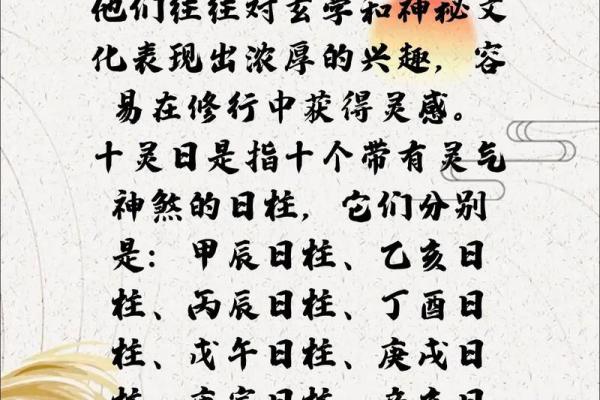 他们往往对玄学和神秘文
化表现出浓厚的兴趣，容
易在修行中获得灵感。
十灵日是指十个带有灵气
神煞的日柱，它们分别
是：甲辰日柱、乙亥日
柱、丙辰日柱、丁酉日
柱、戊午日柱、庚戌日
柱、庚寅日柱、辛亥日